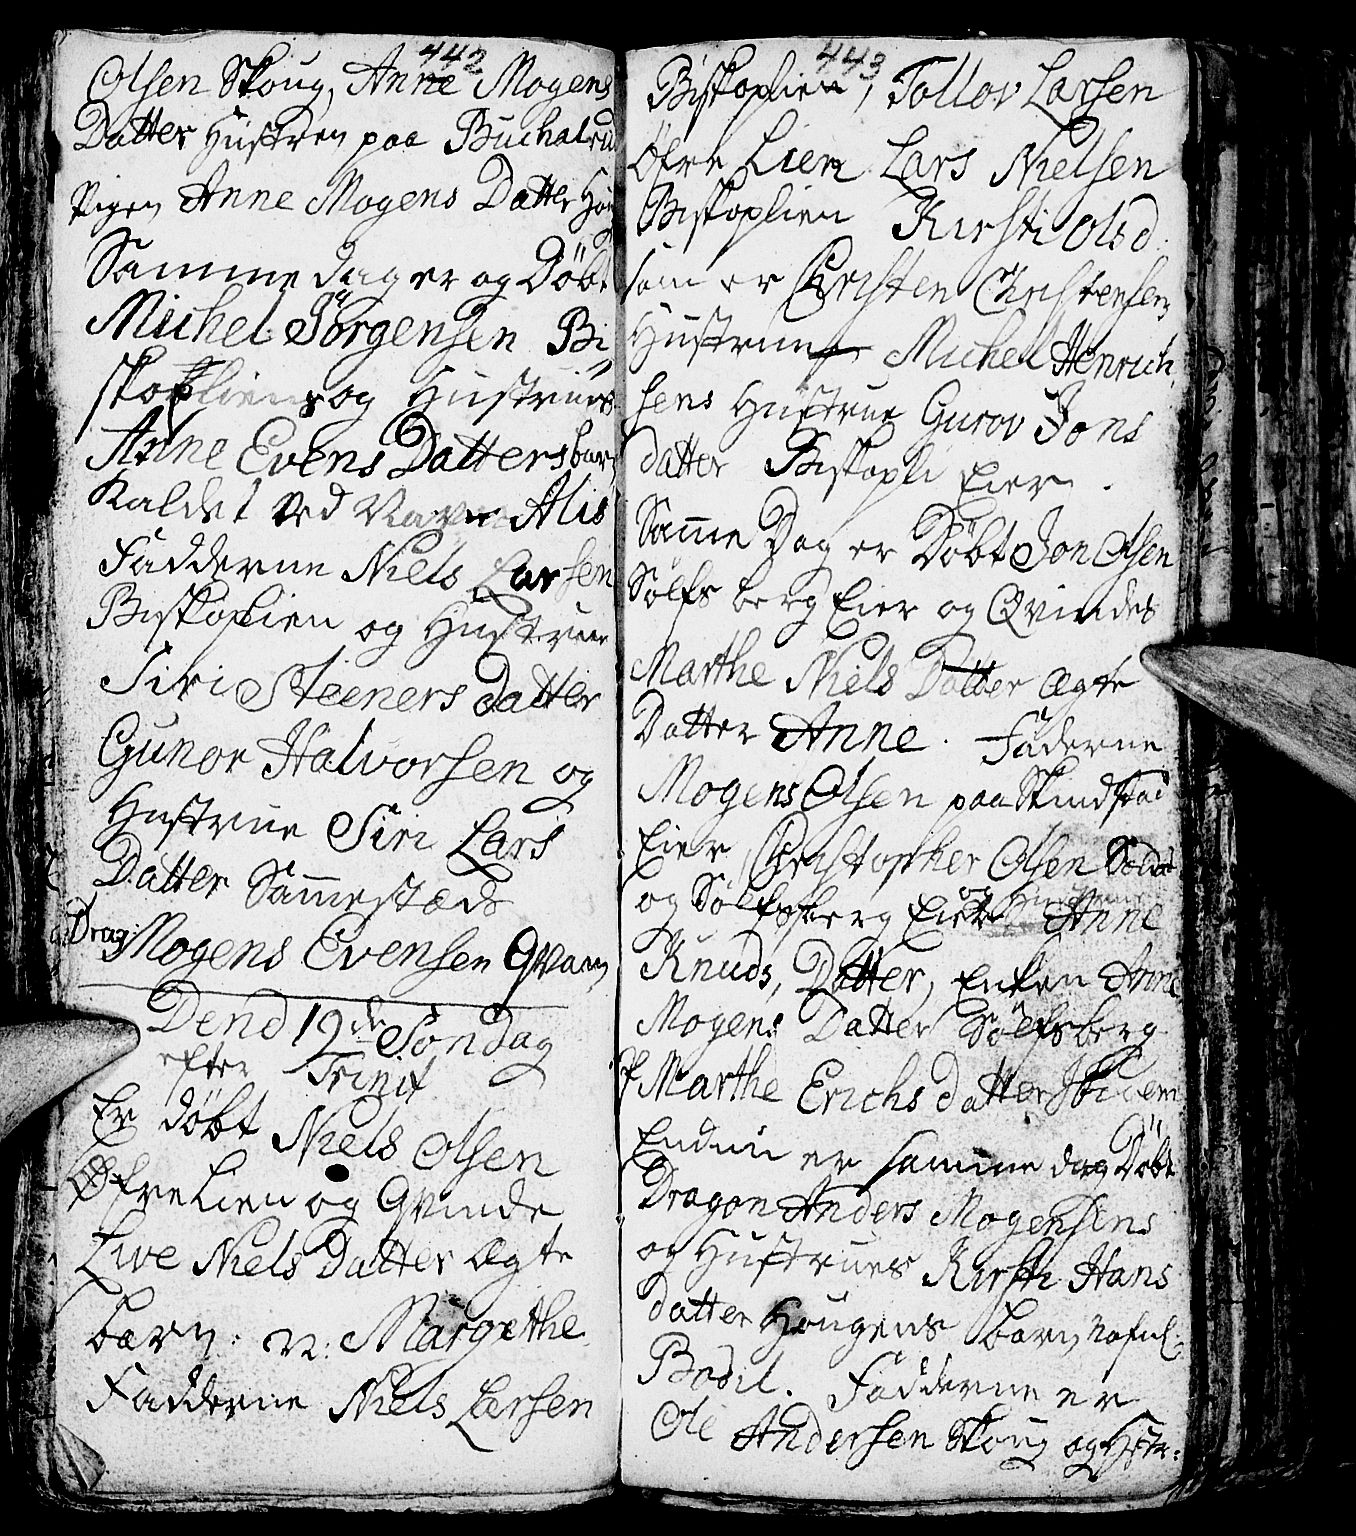 442
Olsen Skoug, Anne Mogens
Datter Hustruen paa Buchalrud
Pigen Anne Mogens Datter
Samme dag er og Döbt
Michel Jörgensen Bi
skoplien og Hustrues
Anne Evens Datters barn
Kaldet ved Navn Alis
Fadderne Niels Larsen
Biskoplien og Hustrue
Siri Steeners datter
Gunor Halvorsen og
Hustrue Siri Lars
Datter Sammestæds
Drag: Mogens Evensen Qvam
Dend 19de Söndag
efter Trinit
Er döbt Niels Olsen
Öfre Lien og Qvinde
Live Niels Datter Ægte
barn: n: Margrethe
Fadderne Niels Larsen
443
Biskoplien, Tollov Larsen
Öfre Lien Lars Nielsen
Biskoplien Kirsti Olsd.
som er Christen Christensens
Hustrue Michel Henrich
sens Hustrue Gurov Jons
datter Biskopli Eier.
Samme Dag er Döbt Jon Olsen
Sölfs berg Eier og Qvindes
Marthe Niels Datter Ægte
Datter Anne. Faderne
Mogens Olsen paa Skindstad
Eier, Christopher Olsen
og Hustrue
og Sölfsberg Eier Anne
Knuds Datter, Enken Anne
Mogens Datter Sölfsberg
P Marthe Erichs datter
Endnu er samme dag Döbt
Dragon Anders Mogensens
og Hustrues Kirsti Hans
datter Hougens barn Nafnl:
Bodil. Fadderne er
Ole Andersen Skoug og Hstr: